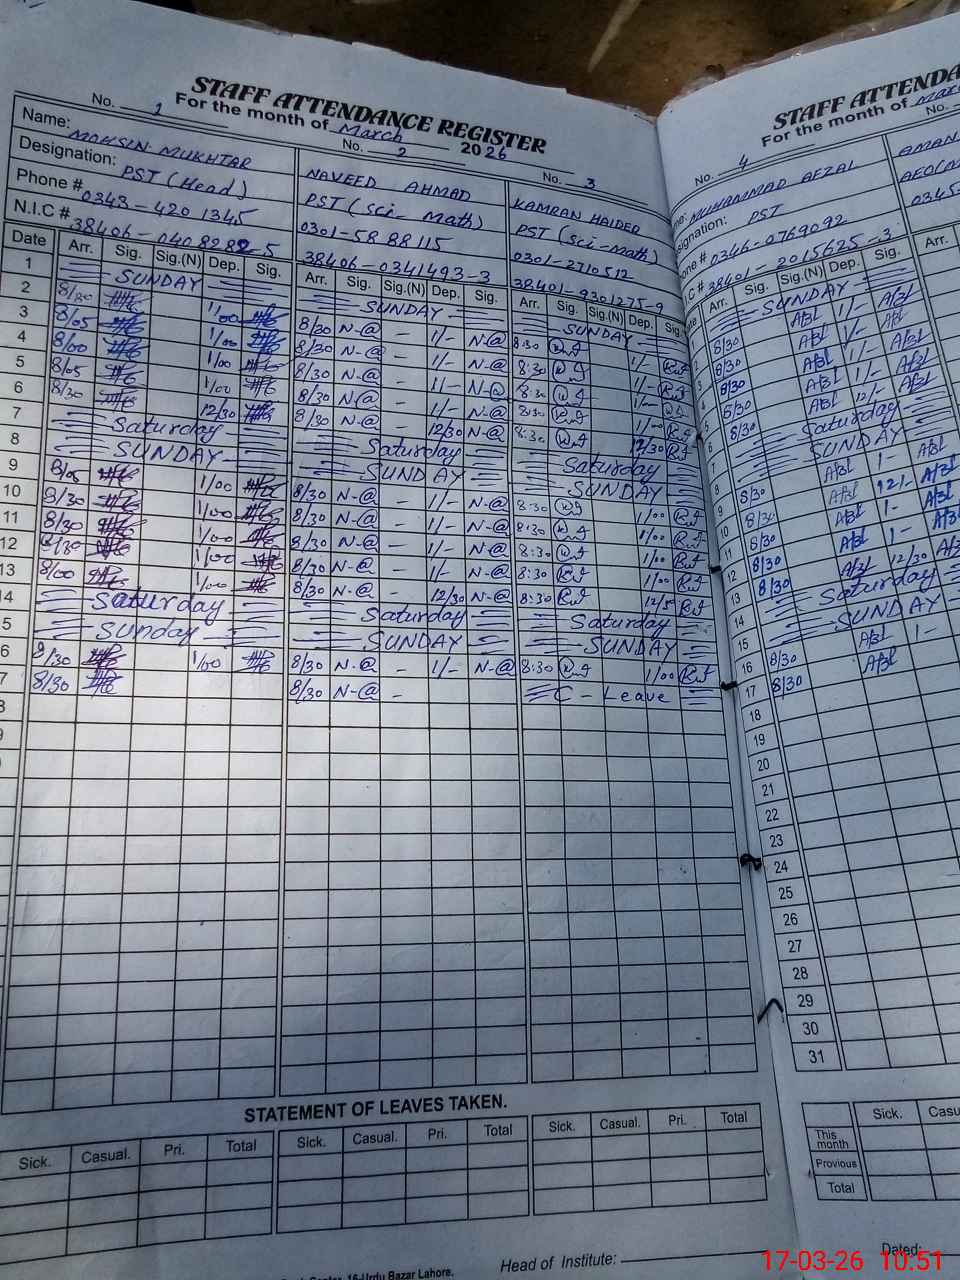 STAFF ATTENDANCE REGISTER
For the month of March 2026
No. 1 No. 2 No. 3
Name: MOHSIN MUKHTAR NAVEED AHMAD KAMRAN HAIDER
Designation: PST (Head) PST (Sci- Math) PST (sci-math)
Phone # 0343-4201345 0301-5888115 0301-2710512
N.I.C # 38406-0408282-5 38406-0341493-3 38401-9301275-9
Date Arr. Sig. Sig.(N) Dep. Sig. Arr. Sig. Sig.(N) Dep. Sig. Arr. Sig. Sig.(N) Dep. Sig.
1 SUNDAY SUNDAY SUNDAY
2 8/30 1/00 8/30 N-@ - 1/- N-@ 8:30 1/-
3 8/05 1/00 8/30 N-@ - 1/- N-@ 8:30 1/-
4 8/00 1/00 8/30 N-@ - 1/- N-@ 8:30 1/-
5 8/05 1/00 8/30 N-@ - 1/- N-@ 8:30 1/00
6 8/30 12/30 8/30 N-@ - 12/30 N-@ 8:30 12/30
7 Saturday Saturday Saturday
8 SUNDAY SUNDAY SUNDAY
9 8/05 1/00 8/30 N-@ - 1/- N-@ 8:30 1/00
10 8/30 1/00 8/30 N-@ - 1/- N-@ 8:30 1/00
11 8/30 1/00 8/30 N-@ - 1/- N-@ 8:30 1/00
12 8/30 1/00 8/30 N-@ - 1/- N-@ 8:30 1/00
13 8/00 1/00 8/30 N-@ - 12/30 N-@ 8:30 12/5
14 Saturday Saturday Saturday
5 Sunday SUNDAY SUNDAY
6 8/30 1/00 8/30 N-@ - 1/- N-@ 8:30 1/00
7 8/30 8/30 N-@ - C - Leave
8
9
STATEMENT OF LEAVES TAKEN.
Sick. Casual. Pri. Total Sick. Casual. Pri. Total Sick. Casual. Pri. Total
Head of Institute:
16-Urdu Bazar Lahore.
STAFF ATTENDA
For the month of Mar
No. 4 No.
MUHAMMAD AFZAL AMAN
signation: PST AEO(M
one # 0346-0769092 0345
I.C # 38401-2015625-3
Date Arr. Sig. Sig.(N) Dep. Sig. Arr.
1 SUNDAY
2 8/30 Afzl 1/- Afzl
3 8/30 Afzl 1/- Afzl
4 8/30 Afzl 1/- Afzl
5 8/30 Afzl 1/- Afzl
6 8/30 Afzl 12/- Afzl
7 Saturday
8 SUNDAY
9 8/30 Afzl 1- Afzl
10 8/30 Afzl 12/- Afzl
11 8/30 Afzl 1- Afzl
12 8/30 Afzl 1- Afzl
13 8/30 Afzl 12/30 Afzl
14 Saturday
15 SUNDAY
16 8/30 Afzl 1-
17 8/30 Afzl
18
19
20
21
22
23
24
25
26
27
28
29
30
31
Sick. Casu
This month
Previous
Total
Dated:
17-03-26 10:51